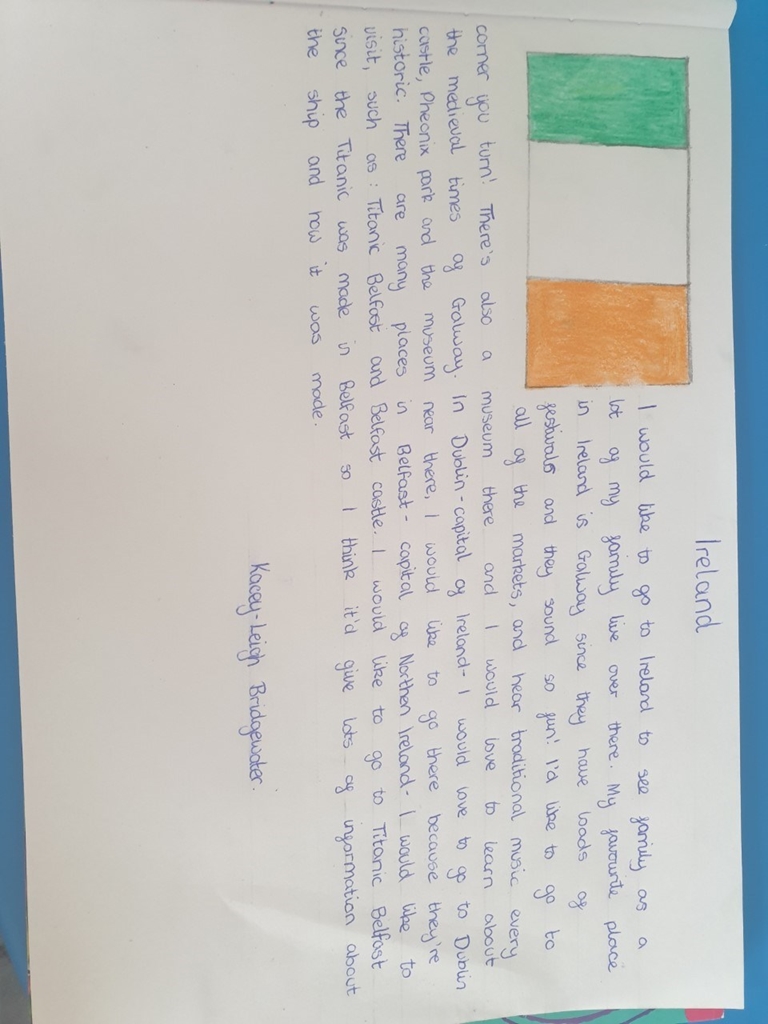 Ireland
I would like to go to Ireland to see family as a
lot of my family live over there. My favourite place
in Ireland is Galway since they have loads of
festivals and they sound so fun! I'd like to go to
all of the markets, and hear traditional music every
corner you turn! There's also a museum there and I would love to learn about
the medieval times of Galway. In Dublin - capital of Ireland - I would love to go to Dublin
castle, Pheonix park and the museum near there, I would like to go there because they're
historic. There are many places in Belfast - capital of Northen Ireland - I would like to
visit, such as: Titanic Belfast and Belfast castle. I would like to go to Titanic Belfast
since the Titanic was made in Belfast so I think it'd give lots of information about
the ship and how it was made.
Kacey-Leigh Bridgewater.